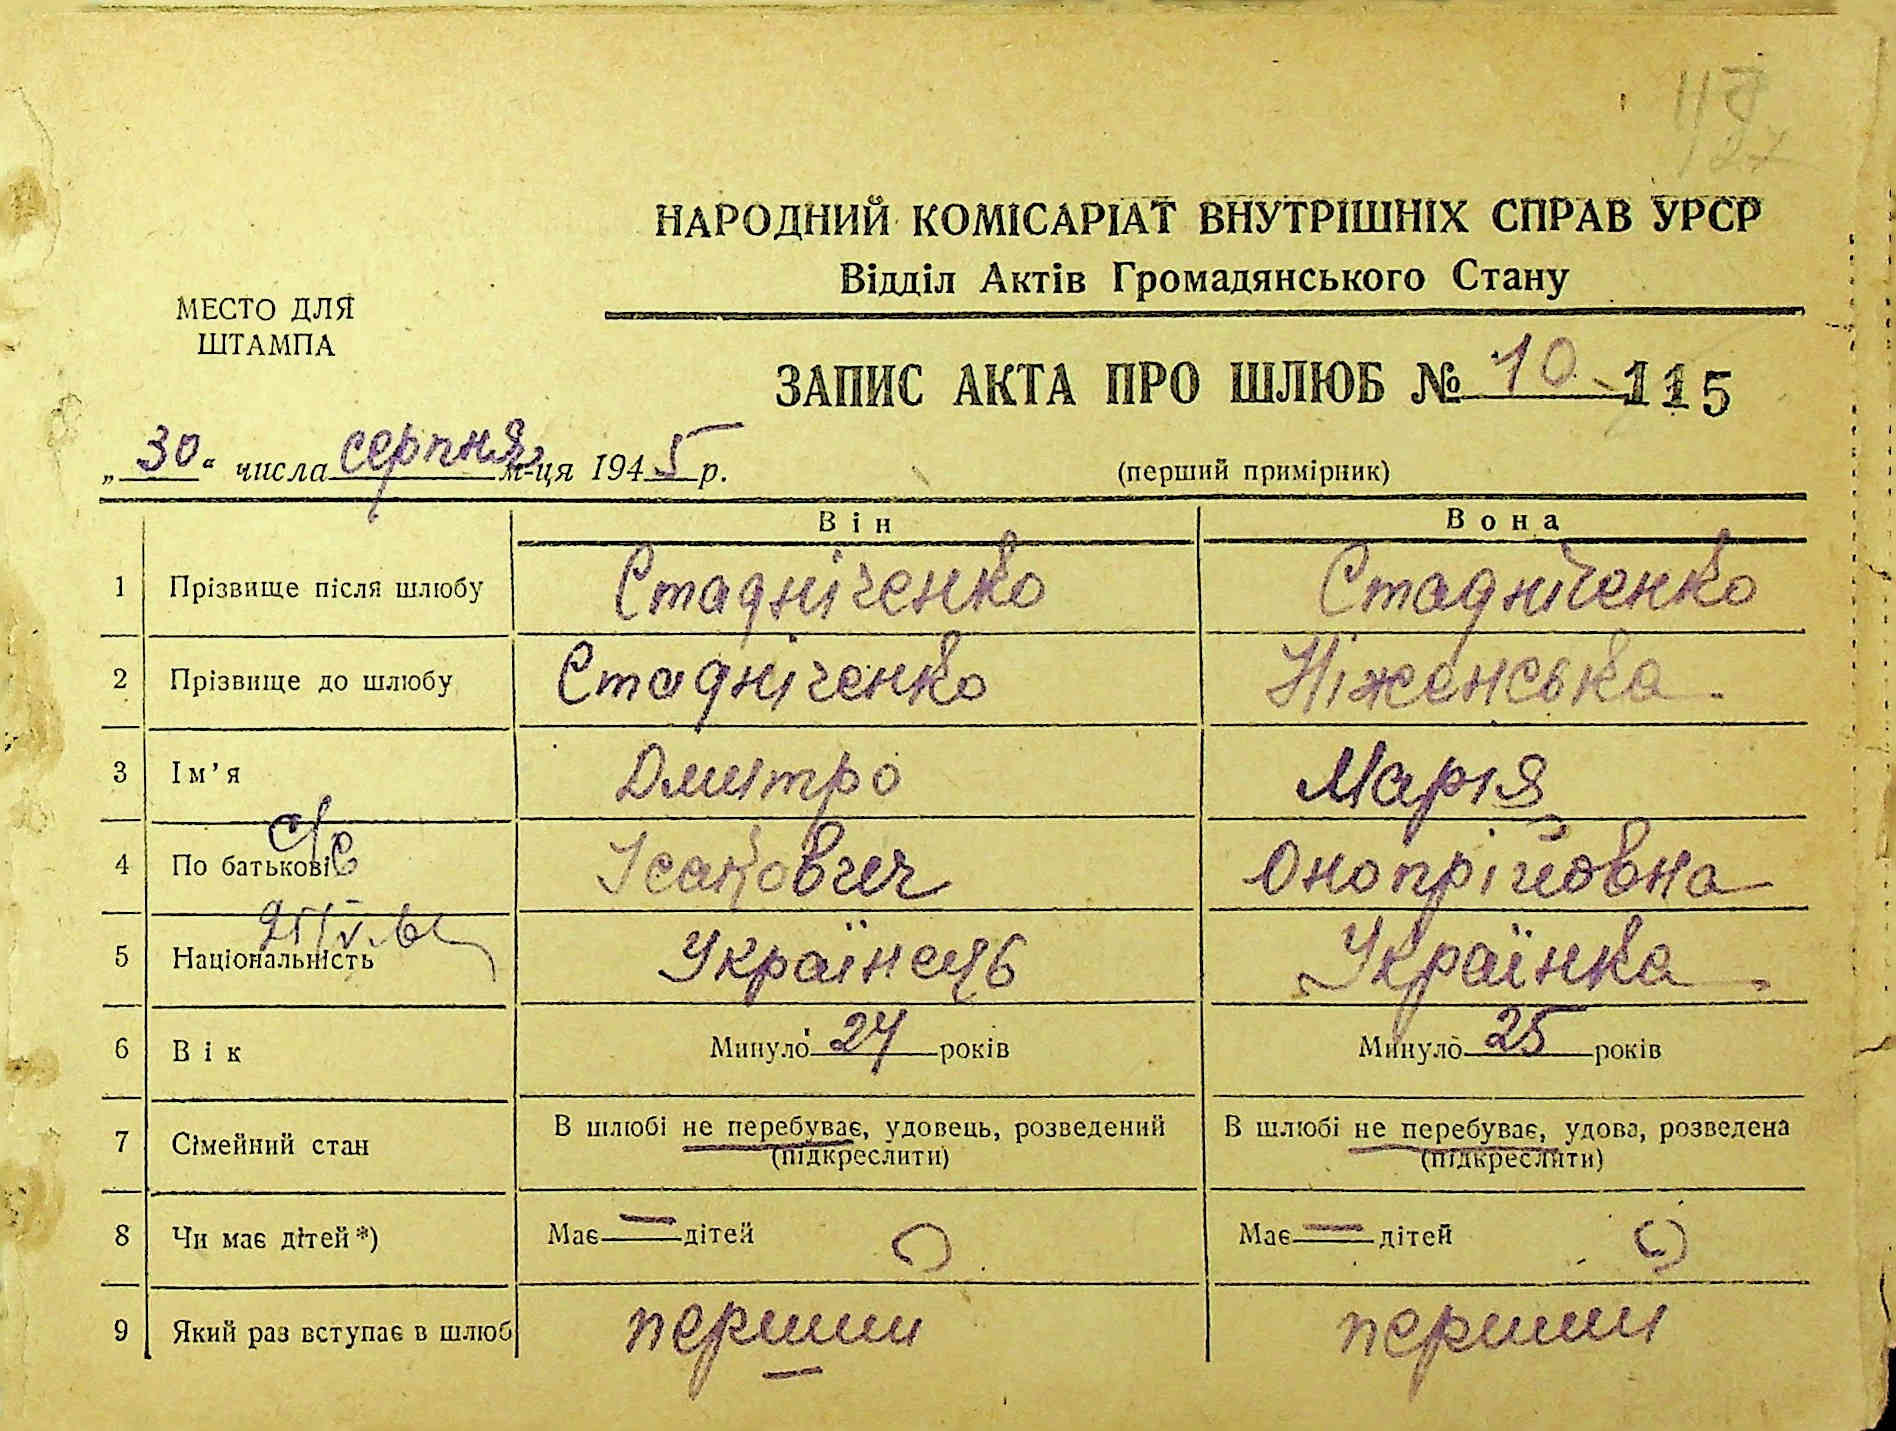 НАРОДНИЙ КОМІСАРІАТ ВНУТРІШНІХ СПРАВ УРСР
Відділ Актів Громадянського Стану
МЕСТО ДЛЯ
ШТАМПА
ЗАПИС АКТА ПРО ШЛЮБ № 10 115
„30“ числа серпня м-ця 1945 р.
(перший примірник)
Він Вона
1 Прізвище після шлюбу Стадніченко Стадніченко
2 Прізвище до шлюбу Стадніченко Ніженська
3 Ім’я Дмитро Марія
4 По батькові Ісакович Онопрійовна
5 Національність Українець Українка
6 Вік Минуло 24 років Минуло 25 років
7 Сімейний стан В шлюбі не перебуває, удовець, розведений (підкреслити) В шлюбі не перебуває, удова, розведена (підкреслити)
8 Чи має дітей*) Має — дітей Має — дітей
9 Який раз вступає в шлюб перший перший